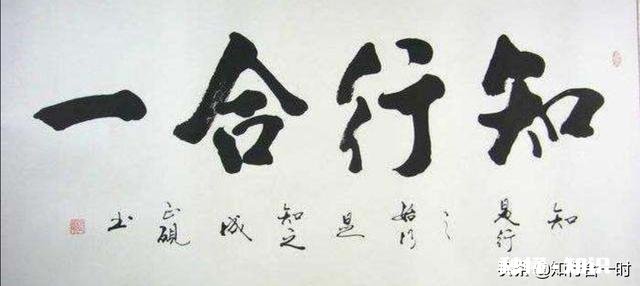 知行合一
知是行之始行是知之成
正硯书
头条 @知行合一时